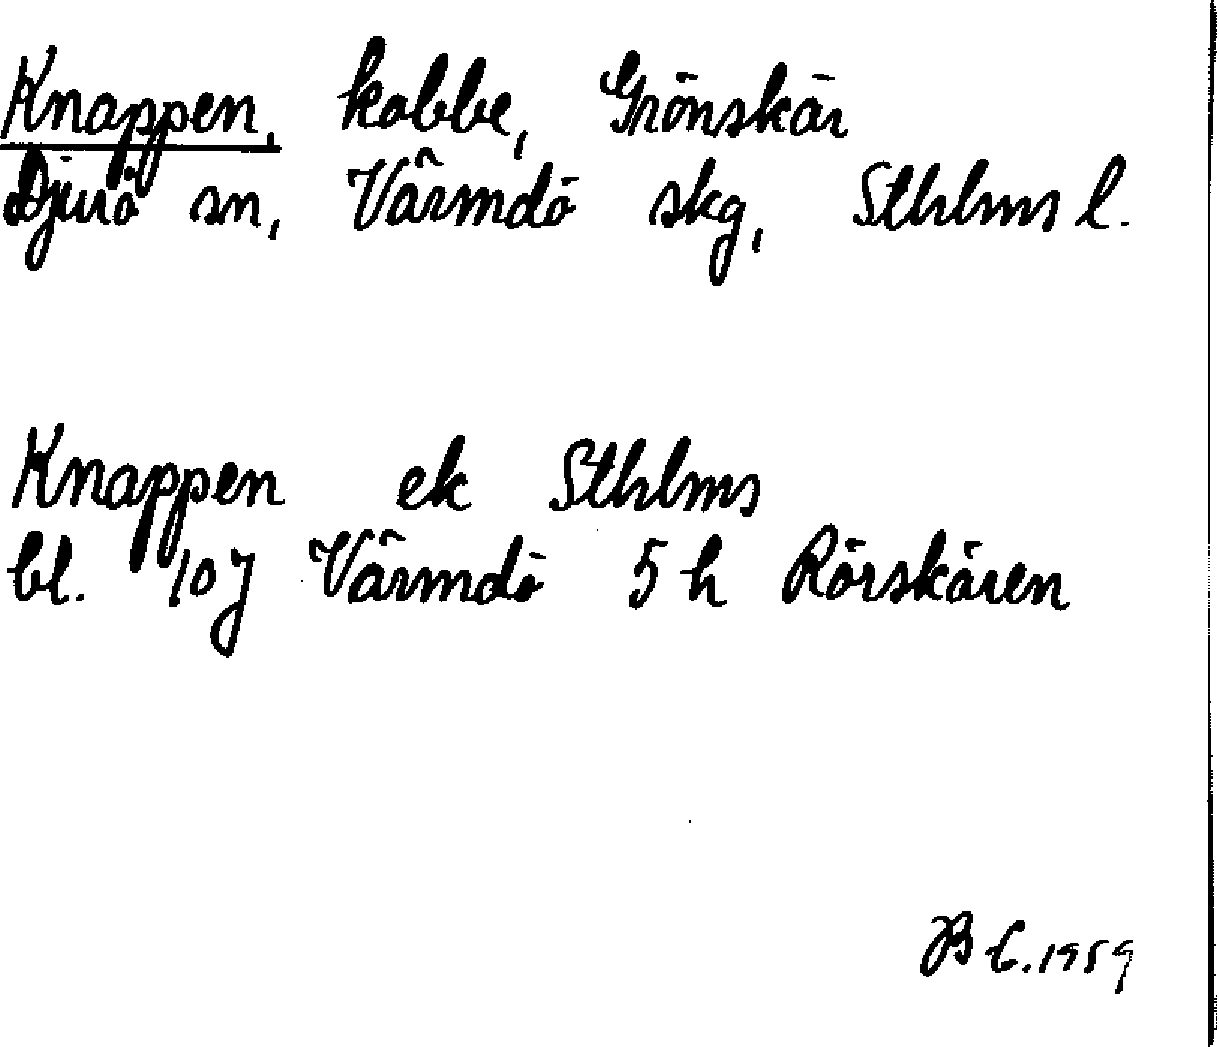 Knappen, kobbe, Grönskär
Djurö sn, Värmdö skg, Sthlms l.
Knappen ek Sthlms
bl. 10J Värmdö 5 h Rörskären
B C. 1959